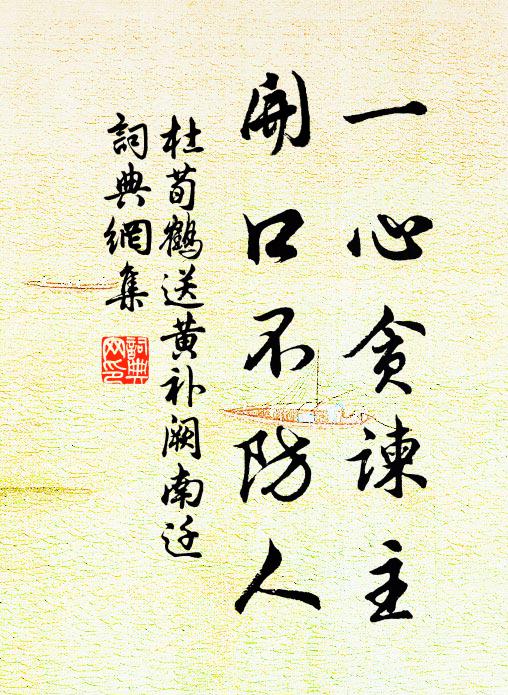 一心贪谏主
開口不防人
杜荀鶴送黄补阙南迁
詞典網集
詞典网印